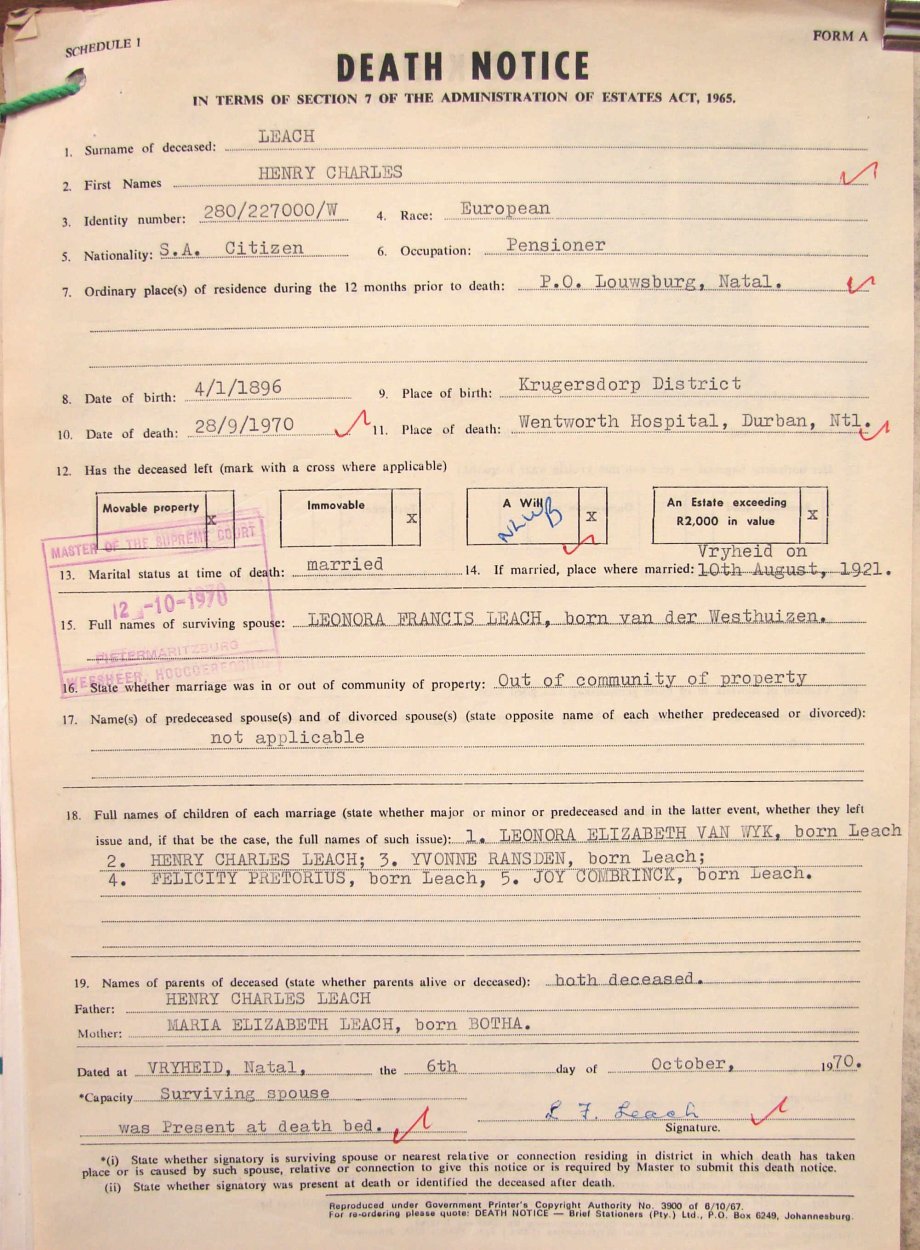 SCHEDULE 1
FORM A
DEATH NOTICE
IN TERMS OF SECTION 7 OF THE ADMINISTRATION OF ESTATES ACT, 1965.
1. Surname of deceased: LEACH
2. First Names HENRY CHARLES
3. Identity number: 280/227000/W 4. Race: European
5. Nationality: S.A. Citizen 6. Occupation: Pensioner
7. Ordinary place(s) of residence during the 12 months prior to death: P.O. Louwsburg, Natal.
8. Date of birth: 4/1/1896 9. Place of birth: Krugersdorp District
10. Date of death: 28/9/1970 11. Place of death: Wentworth Hospital, Durban, Ntl.
12. Has the deceased left (mark with a cross where applicable)
Movable property x
Immovable x
A Will x
An Estate exceeding R2,000 in value x
MASTER OF THE SUPREME COURT
12 -10-1970
PIETERMARITZBURG
WEESHEER, HOOGGEREGSHOF
Vryheid on
13. Marital status at time of death: married 14. If married, place where married: 10th August, 1921.
15. Full names of surviving spouse: LEONORA FRANCIS LEACH, born van der Westhuizen.
16. State whether marriage was in or out of community of property: Out of community of property
17. Name(s) of predeceased spouse(s) and of divorced spouse(s) (state opposite name of each whether predeceased or divorced):
not applicable
18. Full names of children of each marriage (state whether major or minor or predeceased and in the latter event, whether they left
issue and, if that be the case, the full names of such issue): 1. LEONORA ELIZABETH VAN WYK, born Leach
2. HENRY CHARLES LEACH; 3. YVONNE RANSDEN, born Leach;
4. FELICITY PRETORIUS, born Leach, 5. JOY COMBRINCK, born Leach.
19. Names of parents of deceased (state whether parents alive or deceased): both deceased.
Father: HENRY CHARLES LEACH
Mother: MARIA ELIZABETH LEACH, born BOTHA.
Dated at VRYHEID, Natal, the 6th day of October, 1970.
*Capacity Surviving spouse
was Present at death bed. L F. Leach
Signature.
*(i) State whether signatory is surviving spouse or nearest relative or connection residing in district in which death has taken
place or is caused by such spouse, relative or connection to give this notice or is required by Master to submit this death notice.
(ii) State whether signatory was present at death or identified the deceased after death.
Reproduced under Government Printer's Copyright Authority No. 3900 of 6/10/67.
For re-ordering please quote: DEATH NOTICE — Brief Stationers (Pty.) Ltd., P.O. Box 6249, Johannesburg.